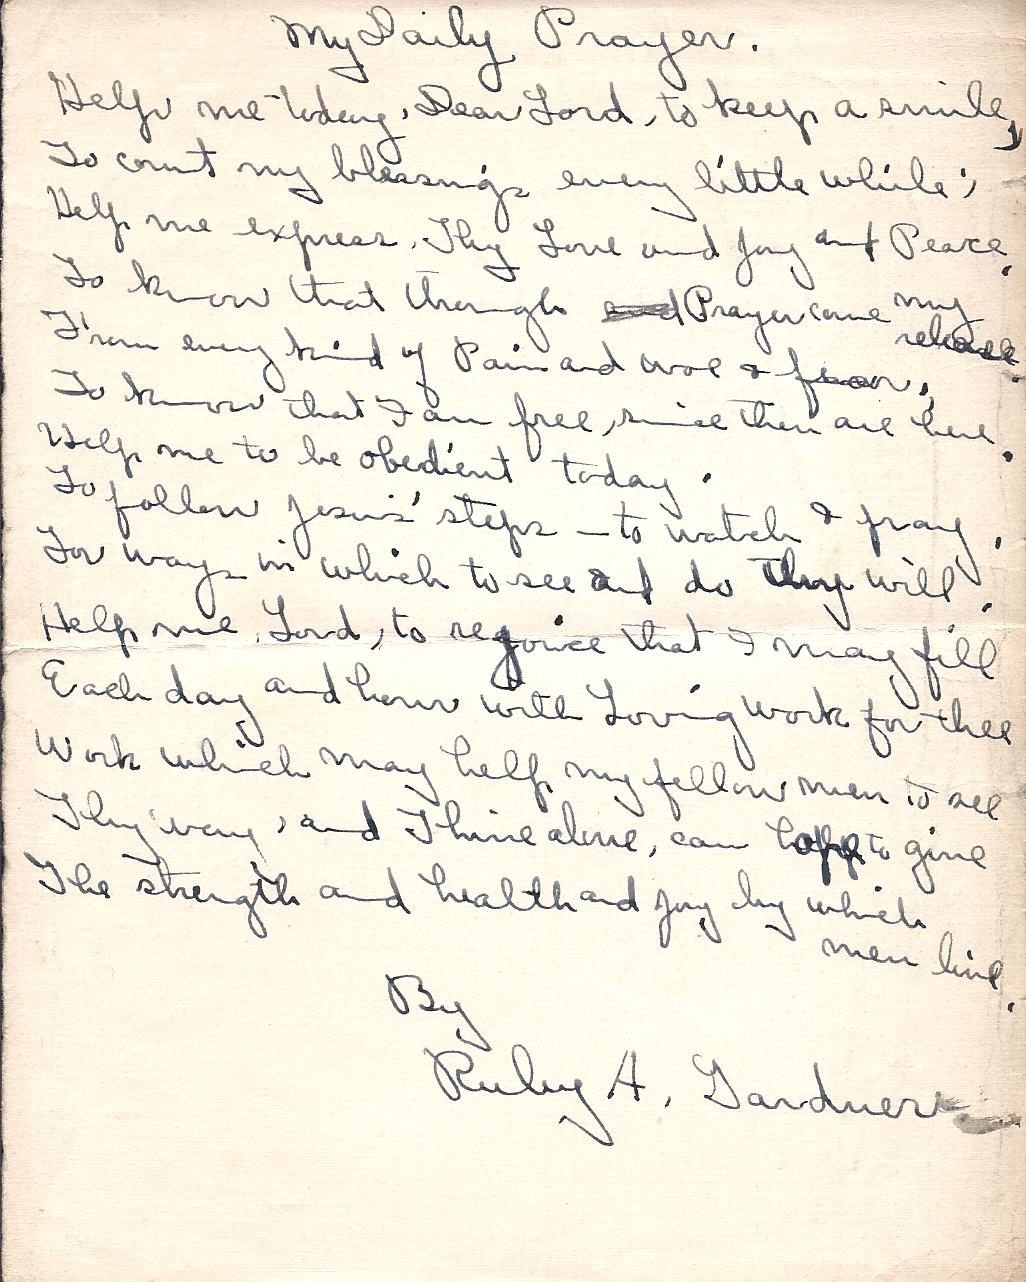 My Daily Prayer.
Help me today, Dear Lord, to keep a smile,
To count my blessings every little while;
Help me express, Thy Love and Joy and Peace,
To know that through and Prayer come my
release.
From every kind of Pain and woe & fear,
To know that I am free, since thou are here.
Help me to be obedient today.
To follow Jesus' steps – to watch & pray,
For ways in which to see and do thy will.
Help me, Lord, to rejoice that I may fill
Each day and hour with Loving work for thee
Work which may help my fellow men to see
Thy way, and Thine alone, can hope to give
The strength and health and joy by which
men live.
By
Ruby A. Gardner